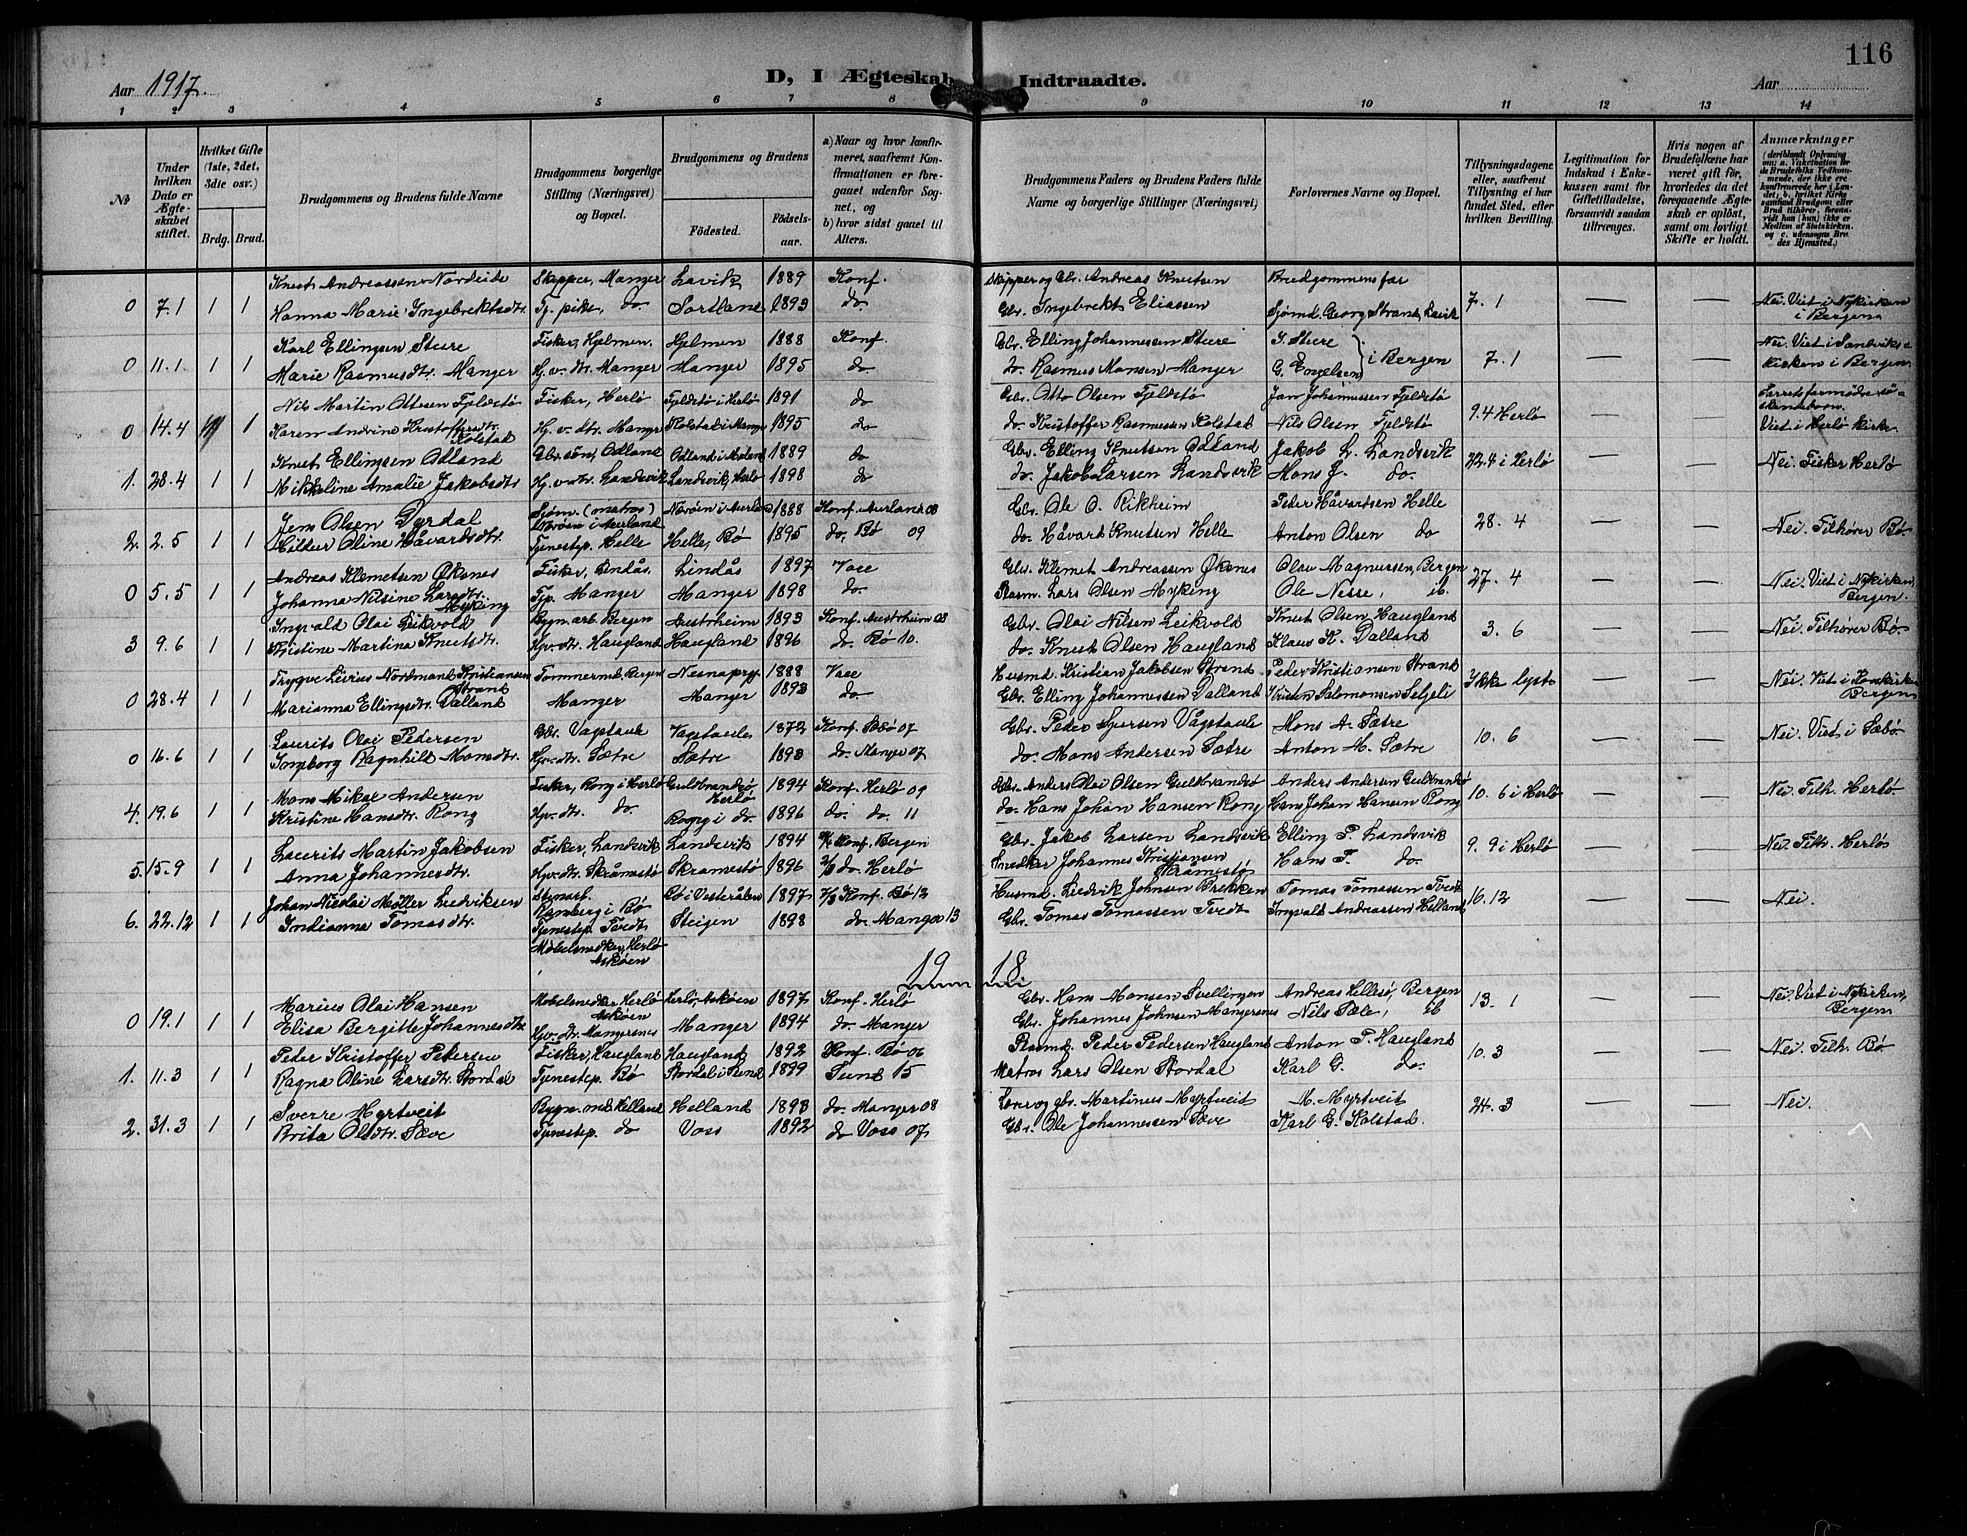 116
Aar 1917. D, I Ægteskab Indtraadte. Aar
1 2 3 4 5 6 7 8 9 10 11 12 13 14
No
Under hvilken Dato er Ægteskabet stiftet.
Hvilket Gifte (1ste, 2det, 3die osv.)
Brdg. Brud.
Brudgommens og Brudens fulde Navne
Brudgommens borgerlige Stilling (Næringsvei) og Bopæl.
Brudgommens og Brudens
Födested. Födselsaar.
a) Naar og hvor konfirmeret, saafremt Konfirmationen er foregaaet udenfor Sognet, og
b) hvor sidst gaaet til Alters.
Brudgommens Faders og Brudens Faders fulde Navne og borgerlige Stillinger (Næringsvei)
Forlovernes Navne og Bopæl.
Tillysningsdagene eller, saafremt Tillysning ei har fundet Sted, efter hvilken Bevilling.
Legitimation for Indskud i Enkekassen samt for Giftetilladelse, forsaavidt saadan tiltrænges.
Hvis nogen af Brudefolkene har været gift för, hvorledes da det foregaaende Ægteskab er oplöst, samt om lovligt Skifte er holdt.
Anmærkninger
(deriblandt Oplysning om: a. Vakcination for de Brudefolks Vedkommende, der ikke ere konfirmerede her i Landet; b. hvilket Kirkesamfund Brudgom eller Brud tilhörer, forsaavidt han (hun) ikke er Medlem af Statskirken, og c. udensogns Brudes Hjemsted.)
Knut Andreassen Nordeide Skipper, Manger Lavik 1889 Konf. Skipper og Gbr. Andreas Knutsen Brudgommens far
0 7.1 1 1 Hanna Marie Ingebrektsdtr. Tj. pike, do. Sortland 1893 do Gbr. Ingebrekt Eliassen Sjømd. Georg Strand, Lavik 7.1 — — Nei. Viet i Nykirken i Bergen
Karl Ellingsen Sture Fisker, Hjelmen. Hjelmen 1888 Konf. Gbr. Elling Johannessen Sture J. Sture
0 11.1. 1 1 Marie Rasmusdtr. Manger Hj. v. dtr. Manger Manger 1895 do do. Rasmus Monsen Manger G. Engelsen } i Bergen 7.1 — — Nei. Viet i Sandvikskirken i Bergen.
Nils Martin Ottosen Fjeldstø Fisker, Herlø Fjeldstø i Herlø 1891 do Gbr. Otto Olsen Fjeldstø Jan Johannessen Fjeldstø
0 14.4 1 Karen Andrine Kristoffersdtr. Kolstad Hj. v. dtr. Manger Kolstad i Manger 1895 do do. Kristoffer Rasmussen Kolstad Nils Olsen Fjeldstø 9.4 Herlø — — Viet i Herlø kirke
Knut Ellingsen Odland Gbr. søn, Odland Odland i Meland 1889 do Gbr. Elling Knutsen Odland Jakob L. Landsvik
1. 28.4 1 1 Mikkeline Amalie Jakobsdtr. Hj. v. dtr. Landsvik Landsvik, Herlø 1898 do do. Jakob Larsen Landsvik Mons J. do. 22.4 i Herlø — — Nei. Fisker Herlø
Jens Olsen Dyrdal Sjøm. (matros) Nærøen i Aurland Nærøen i Aurland 1888 Konf. Aurland 03 Gbr. Ole O. Rikheim Peder Håvardsen Helle
2. 2.5 1 1 Hildur Oline Håvardsdtr. Tjenestep. Helle Helle, Bø 1895 do. Bø 09 do. Håvard Knutsen Helle Anton Olsen do 28.4 — — Nei. Tilhører Bø.
Andreas Klemetsen Øksnes Fisker, Lindås. Lindås 1897 Vacc Gbr. Klemet Andreassen Øksnes Olav Magnussen, Bergen
0 5.5 1 1 Johanna Nilsine Larsdtr. Myking Tjp. Manger Manger 1898 do. Plasm. Lars Olsen Myking Ole Nesse, ib. 27.4 — — Nei. Viet i Nykirken, Bergen.
Ingvald Olai Leikvold Bygn. arb. Bergen Austrheim 1893 Konf. Austrheim 08 Gbr. Olai Nilsen Leikvold Knut Olsen Haugland
3 9.6 1 1 Kristine Martine Knutsdtr. Hjv. dtr. Haugland Haugland 1896 do. Bø 10. do. Knut Olsen Haugland Klaus K. Dalland 3.6 — — Nei. Tilhører Bø.
Trygve Livius Nordmand Kristiansen Strand Tømmermd. Bergen Nesna prgj. 1888 Vacc Husmd. Kristian Jakobsen Strand Peder Kristiansen Strand
0 28.4 1 1 Marianna Ellingsdtr. Dalland Manger Manger 1893 do. Gbr. Elling Johannessen Dalland Kristen Salomonsen Seljeli Ikke lyst — — Nei. Viet i Korskirken Bergen
Laurits Olai Pedersen Gbr. Vågstaule Vågstaule 1872 Konf. Bø 07 Gbr. Peder Sjursen Vågstaule Mons A. Sætre
0 16.6 1 1 Ingeborg Ragnhild Monsdtr. Hjv. dtr. Sætre Sætre 1893 do. Manger 07 do. Mons Andersen Sætre Anton M. Sætre 10.6 — — Nei. Viet i Sæbø.
Mons Mikal Andersen Fisker, Rong i Herlø Guldbrandsø Herlø 1894 Konf. Herlø 09 Gbr. Anders Olai Olsen Guldbrandsø Anders Andersen Guldbrandsø
4. 19.6 1 1 Kristine Hansdtr. Rong Hjv. dtr. do. Rong i do. 1896 do. do. 11 do. Hans Johan Hansen Rong Hans Johan Hansen Rong 10.6 i Herlø — — Nei. Tilh. Herlø.
Laurits Martin Jakobsen Fisker, Landsvik Landsvik 1894 Konf. Bergen Gbr. Jakob Larsen Landsvik Elling P. Landsvik
5. 15.9 1 1 Anna Johannesdtr. Hjv. dtr. Skråmestø Skramestø 1896 do. Herlø Snedker Johannes Kristiansen Skramestø Hans P. do. 9.9 i Herlø — — Nei. Tilh. Herlø
Johan Nicolai Møller Ludviksen Ramberg i Bø Bø i Vesterålen 1897 Konf. Bø 12 Husmd. Ludvik Johnsen Brekken Tomas Tomassen Tvedt
6. 22.12 1 1 Indianna Tomasdtr. Tjenestep. Tvedt Steigen 1898 do. Manger 13 Gbr. Tomas Tomassen Tvedt Ingvald Andreassen Helland 16.12 — — Nei.
Møbelsnedker, Herlø Askøen
1918.
Marius Olai Hansen Møbelsnedker Herlø Askøen Herlø, Askøen 1897 Konf. Herlø Gbr. Hans Monsen Svellingen Andreas Hellesø, Bergen
0 19.1 1 1 Elisa Bergitte Johannesdtr Hjv. dtr. Mangersnes Manger 1894 do. Manger Gbr. Johannes Johnsen Mangersnes Nils Tæle, ib 13.1 — — Nei. Viet i Nykirken, Bergen
Peder Kristoffer Pedersen Fisker, Haugland Haugland 1892 Konf. Bø 06 Plasmd. Peder Pedersen Haugland Anton P. Haugland
1. 11.3 1 1 Ragna Oline Larsdtr. Stordal Tjenestep. Bø Stordal i Sund 1899 Sund 15 Matros Lars Olsen Stordal Karl G. do. 10.3 — — Nei. Tilh. Bø
Sverre Myrtveit Bygn. md. Helland Helland 1893 do. Manger 08 Lærer og gbr. Martinus Myrtveit M. Myrtveit
2. 31.3 1 1 Brita Olsdtr. Sæve Tjenestep. do Voss 1892 do Voss 07 Gbr. Ole Johannessen Sæve Karl G. Kolstad. 24.3 — — Nei.